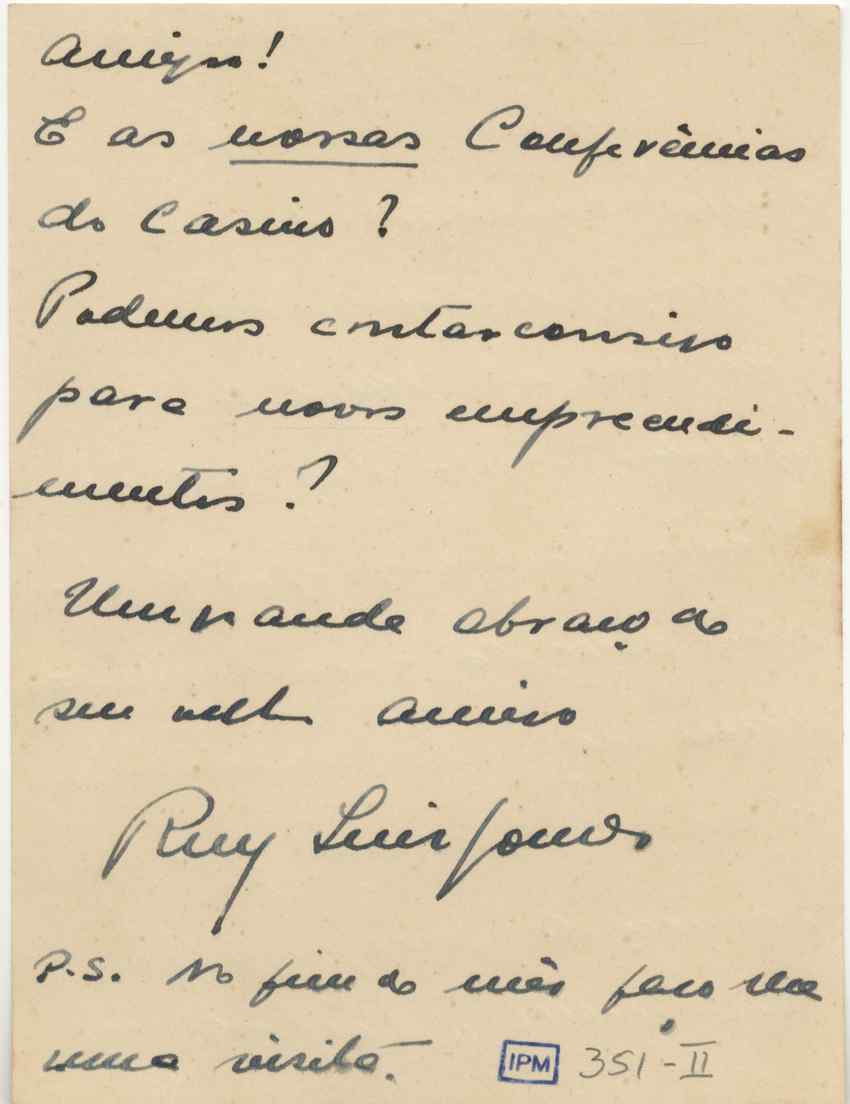 Amigo!
E as nossas Conferências
do Casino?
Podemos contar consigo
para novos empreendi-
mentos?
Um grande abraço do
seu velho amigo
Ruy Luis Gomes
P.S. No fim do mês faço-lhe
uma visita.
IPM 351-II